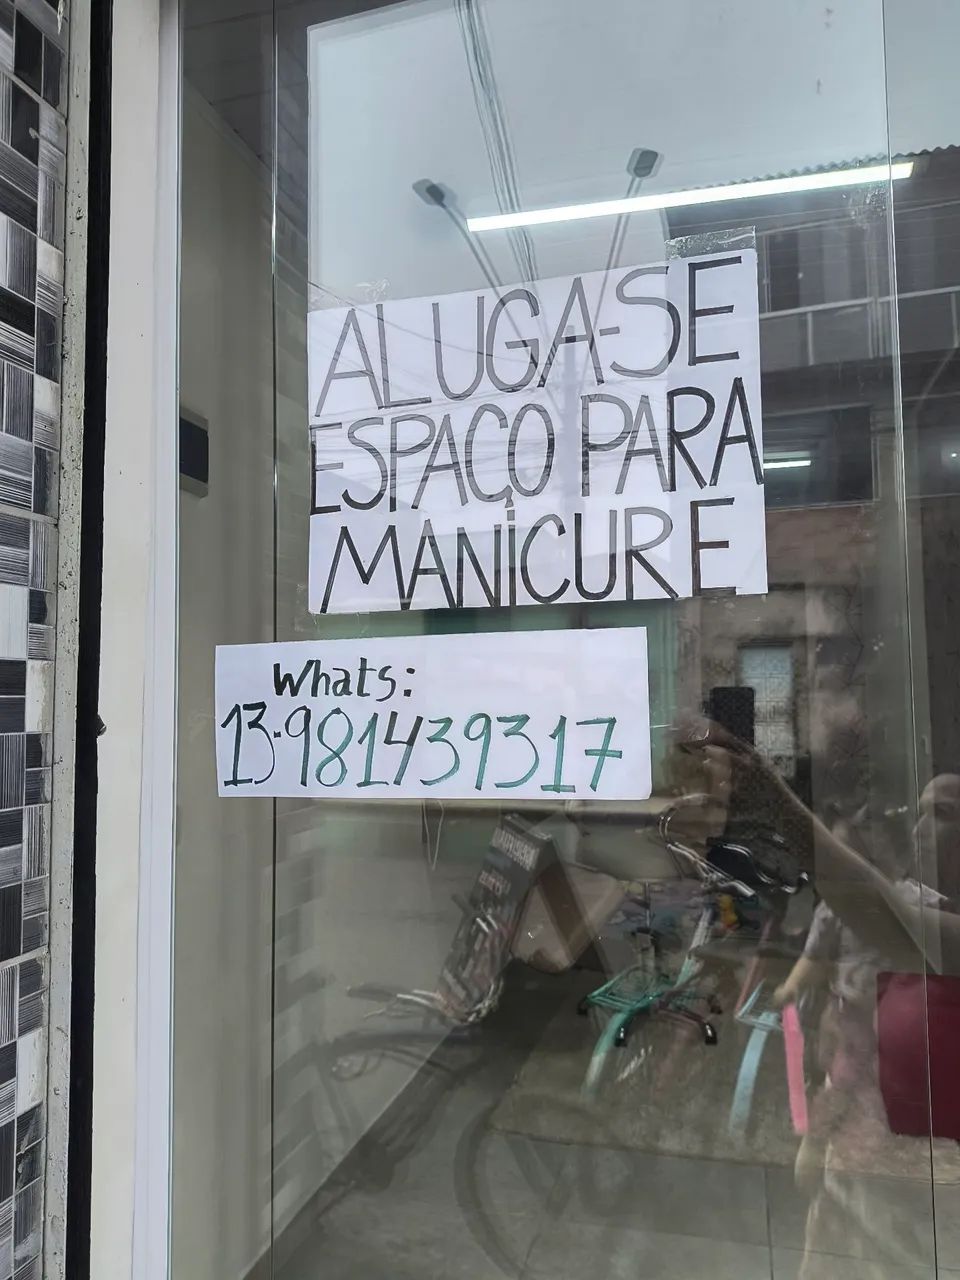 ALUGA-SE
ESPAÇO PARA
MANİCURE
Whats:
13.981439317